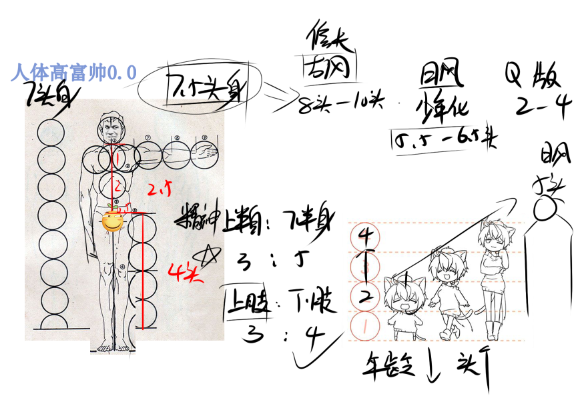 人体高富帅0.0
7头身
7.5头身
古风
8头-10头
日风
少年化
5.5-6.5头
Q版
2-4
日风
5头
① 
2
2.5
4头
精神上半身:下半身
3:5
上肢:下肢
3:4
4
3
2
1
年龄↓ 头↑